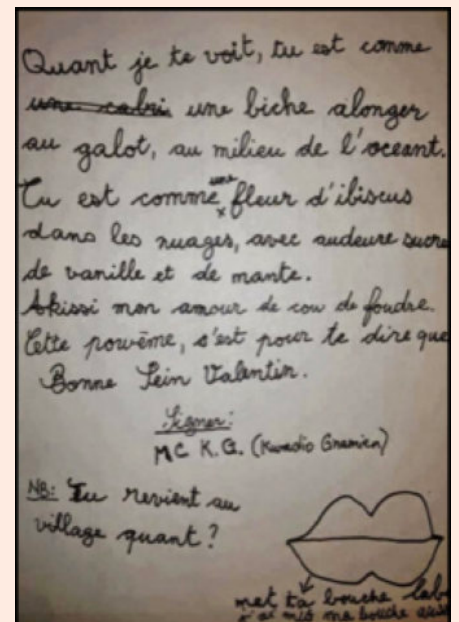 Quant je te voit, tu est comme
une cabri une biche alonger
au galot, au milieu de l'oceant.
Tu est comme une fleur d'ibiscus
dans les nuages, avec audeure sucre
de vanille et de mante.
Akissi mon amour de cou de foudre.
Cette powème, s'est pour te dire que
Bonne Sein Valentin.
Signer:
MC K.G. (Kwadio Gnamien)
NB: Tu revient au
village quant ?
met ta bouche
j'ai mis ma bouche